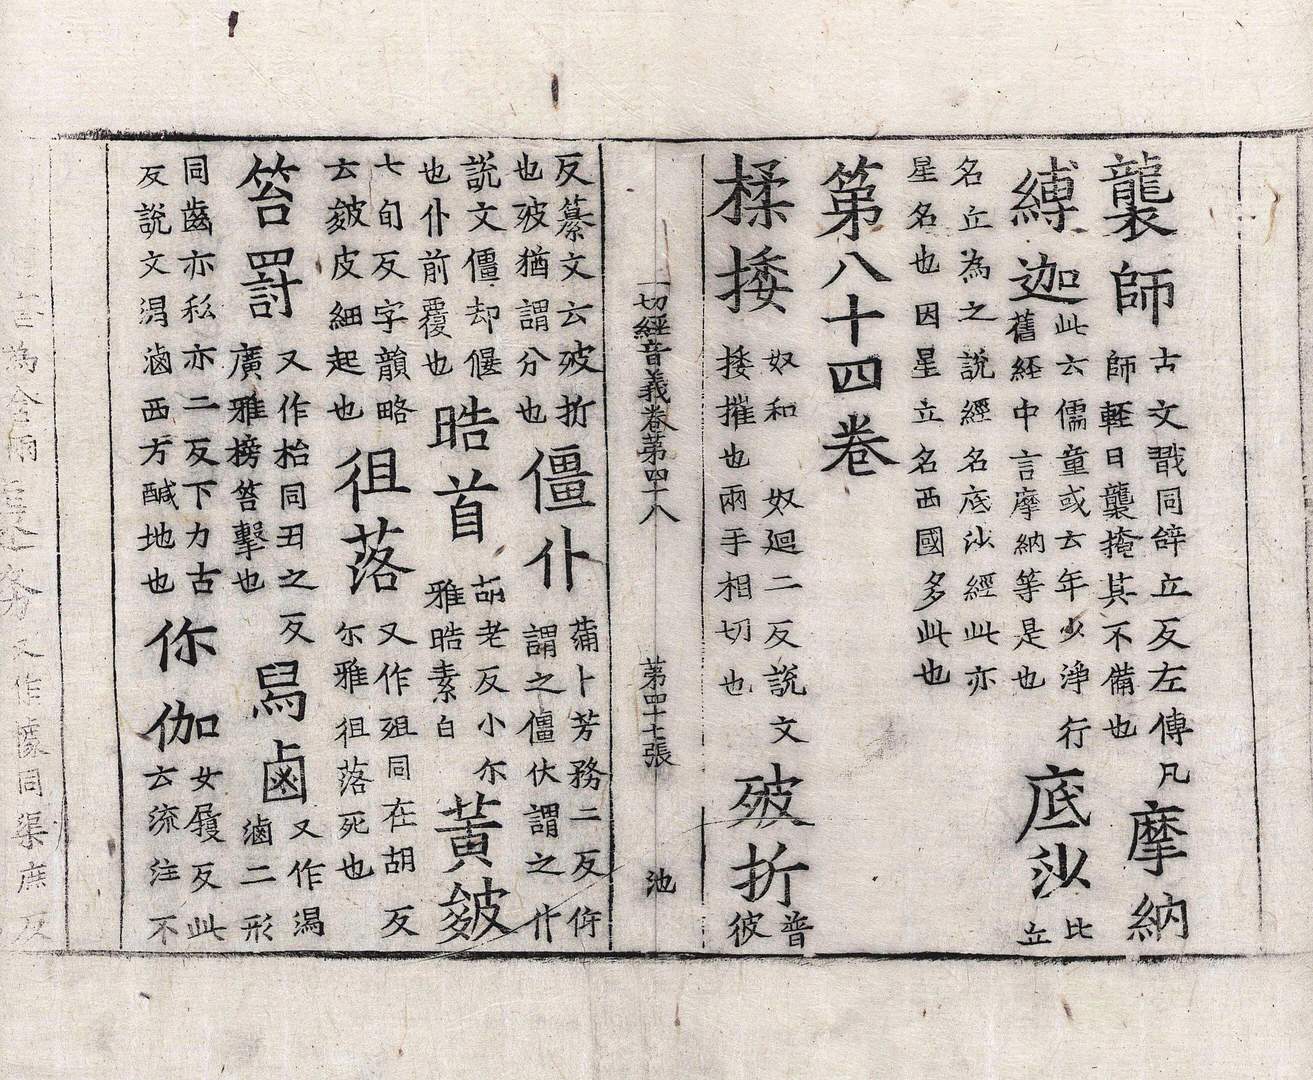 襲師古文戠同辝立反左傳凡師輕日襲掩其不備也摩納
縛迦此云儒童或云年少淨行舊經中言摩納等是也底沙比立
名丘為之說經名底沙經此亦星名也因星立名西國多此也
第八十四卷
揉捼奴和奴廻二反說文捼摧也兩手相切也㱟折普彼
一切經音義卷第四十八 第四十七張 池
反纂文云㱟折也㱟猶謂分也僵仆蒲卜芳務二反偝謂之僵伏謂之仆
說文僵却偃也仆前覆也晧首胡老反小尒雅晧素白黃皴
七旬反字韻略云皴皮細起也徂落又作殂同在胡反尒雅徂落死也
笞罰又作枱同丑之反廣雅榜笞擊也舄鹵又作潟滷二形
同齒亦私亦二反下力古反說文潟滷西方鹹地也你伽女履反此云流注不